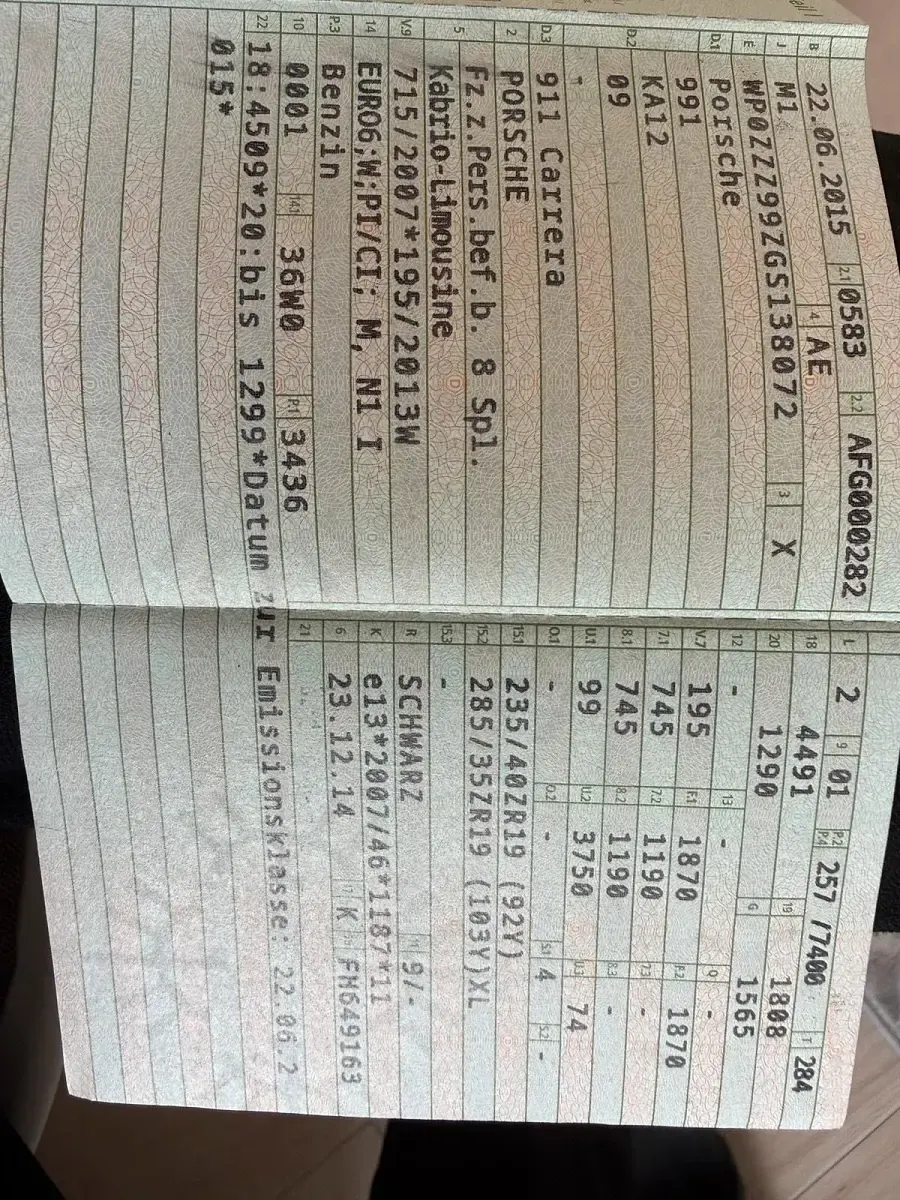 B 22.06.2015 2.1 0583 2.2 AFG000282
J M1 4 AE
E WP0ZZZ99ZGS138072 3 X
D.1 Porsche
991
D.2 KA12
09
-
D.3 911 Carrera
2 PORSCHE
5 Fz.z.Pers.bef.b. 8 Spl.
Kabrio-Limousine
V.9 715/2007*195/2013W
14 EURO6;W;PI/CI; M, N1 I
P.3 Benzin
10 0001 14.1 36W0 P.1 3436
22 18:4509*20:bis 1299*Datum zur Emissionsklasse: 22.06.2
015*
L 2 9 01 P.2 P.4 257 /7400 T 284
18 4491 19 1808
20 1290 G 1565
12 - 13 - Q -
V.7 195 F.1 1870 F.2 1870
7.1 745 7.2 1190 7.3 -
8.1 745 8.2 1190 8.3 -
U.1 99 U.2 3750 U.3 74
O.1 - O.2 - S.1 4 S.2 -
15.1 235/40ZR19 (92Y)
15.2 285/35ZR19 (103Y)XL
15.3 -
R SCHWARZ 11 9/-
K e13*2007/46*1187*11
6 23.12.14 17 K 16 FH649163
21